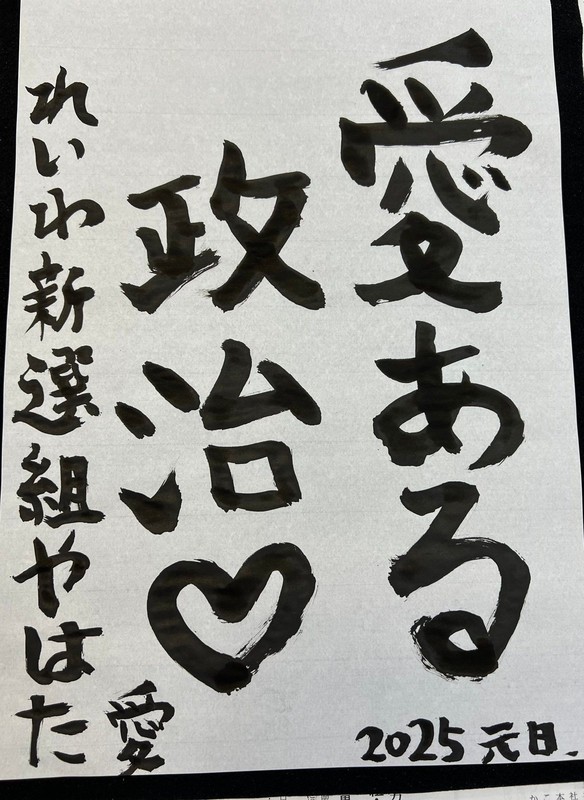 愛ある
政治♡
れいわ新選組やはた
愛
2025 元日.